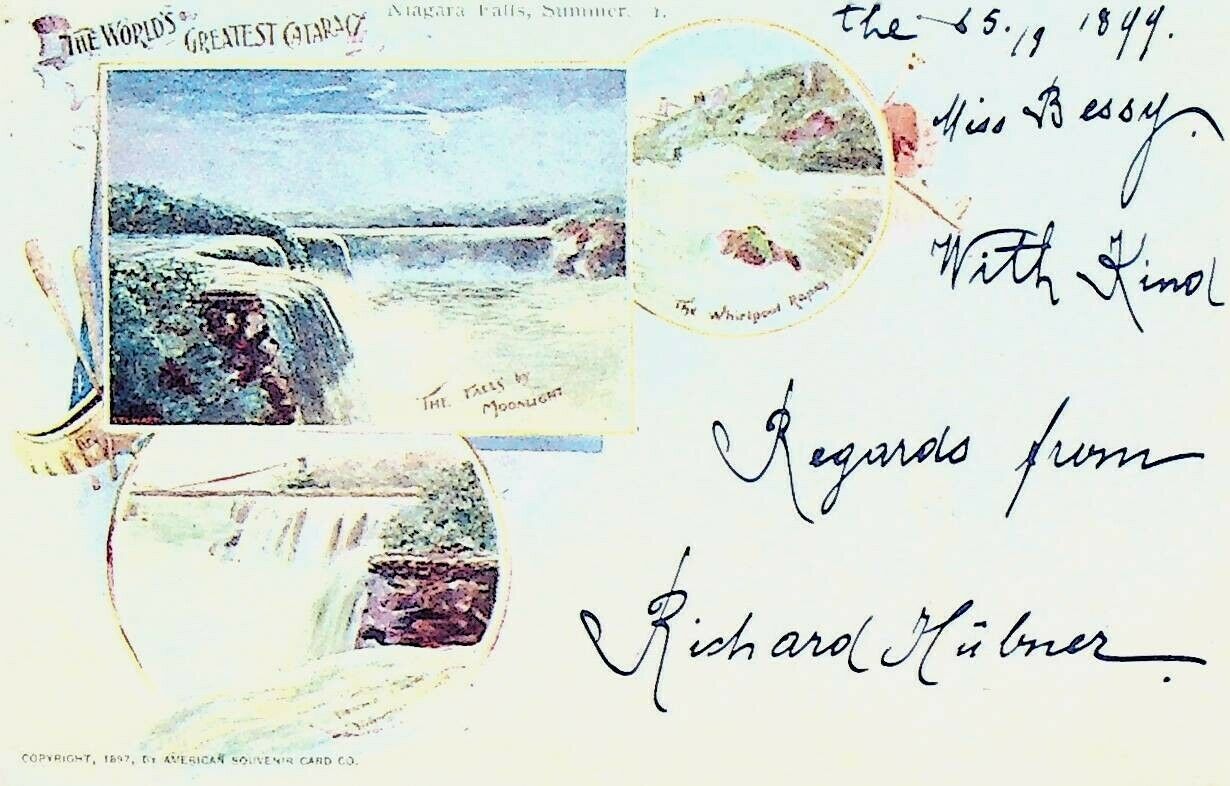 THE WORLD'S GREATEST CATARACT
Niagara Falls, Summer. 1.
the 1899.
Miss Bessy.
With Kind
Regards from
Richard Hübner.
The Whirlpool Rapids
THE FALLS by
MOONLIGHT
COPYRIGHT, 1897, BY AMERICAN SOUVENIR CARD CO.